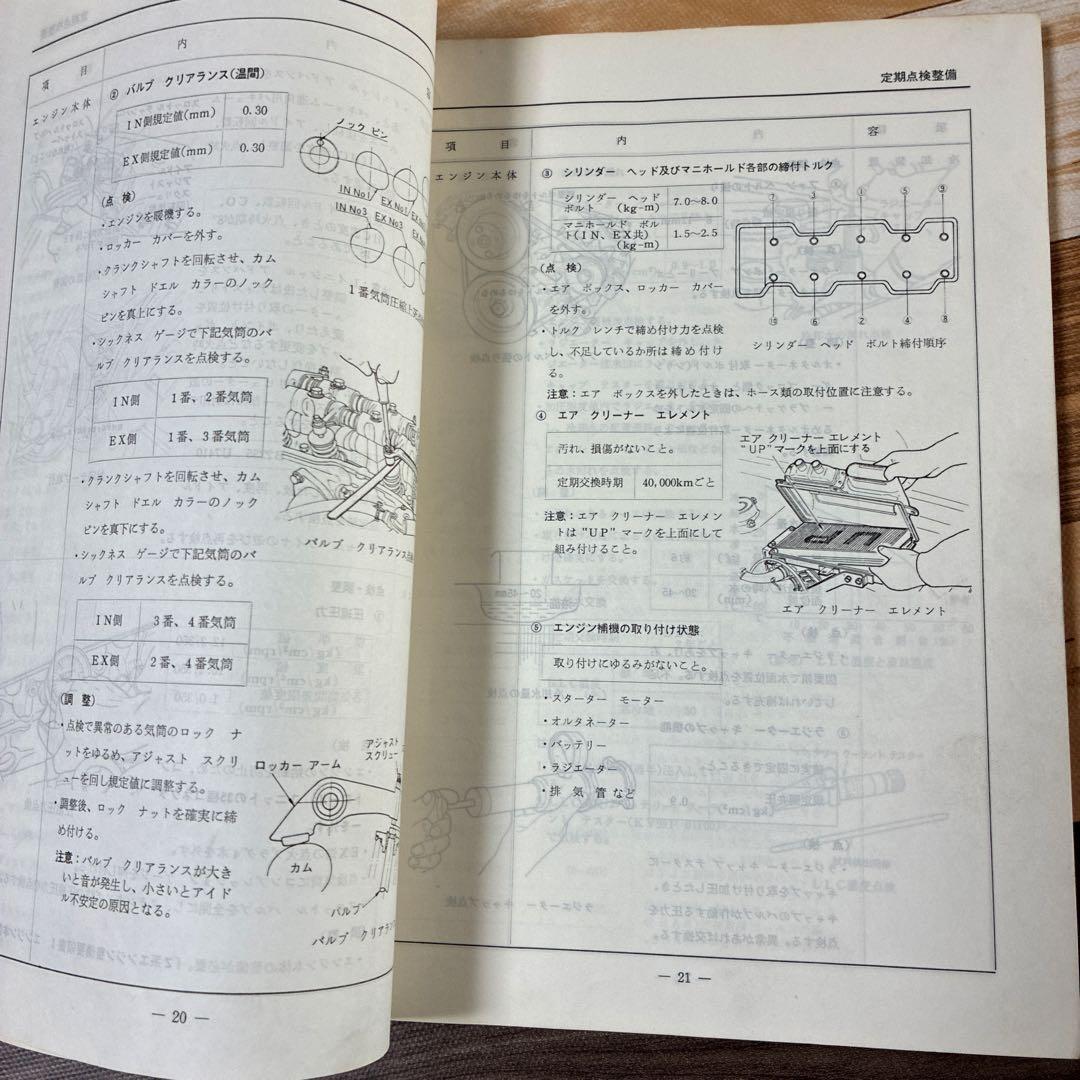 項 目
内
エンジン本体
② バルブ クリアランス(温間)
IN側規定値(mm) 0.30
EX側規定値(mm) 0.30
(点 検)
・エンジンを暖機する。
・ロッカー カバーを外す。
・クランクシャフトを回転させ、カム
シャフト ドエル カラーのノック
ピンを真上にする。
・シックネス ゲージで下記気筒のバ
ルブ クリアランスを点検する。
IN側 1番、2番気筒
EX側 1番、3番気筒
・クランクシャフトを回転させ、カム
シャフト ドエル カラーのノック
ピンを真下にする。
・シックネス ゲージで下記気筒のバ
ルブ クリアランスを点検する。
IN側 3番、4番気筒
EX側 2番、4番気筒
(調 整)
・点検で異常のある気筒のロック ナ
ットをゆるめ、アジャスト スクリ
ューを回し規定値に調整する。
・調整後、ロック ナットを確実に締
め付ける。
注意：バルブ クリアランスが大き
いと音が発生し、小さいとアイド
ル不安定の原因となる。
ノック ピン
IN No1 EX No1
IN No3 EX No3
1番気筒圧縮上死
バルブ クリアランス
アジャスト
スクリュー
ロッカー アーム
カム
バルブ
バルブ クリア
— 20 —
定期点検整備
項 目
内 容
エンジン本体
③ シリンダー ヘッド及びマニホールド各部の締付トルク
シリンダー ヘッド
ボルト (kg-m) 7.0～8.0
マニホールド ボル
ト(IN、EX共)
(kg-m) 1.5～2.5
(点 検)
・エア ボックス、ロッカー カバー
を外す。
・トルク レンチで締め付け力を点検
し、不足しているか所は締め付け
る。
注意：エア ボックスを外したときは、ホース類の取付位置に注意する。
⑦ ③ ① ⑤ ⑨
⑩ ⑥ ② ④ ⑧
シリンダー ヘッド ボルト締付順序
④ エア クリーナー エレメント
汚れ、損傷がないこと。
定期交換時期 40,000kmごと
注意：エア クリーナー エレメン
トは"UP"マークを上面にして
組み付けること。
エア クリーナー エレメント
"UP"マークを上面にする
UP
エア クリーナー エレメント
⑤ エンジン補機の取り付け状態
取り付けにゆるみがないこと。
・スターター モーター
・オルタネーター
・バッテリー
・ラジエーター
・排気管など
— 21 —